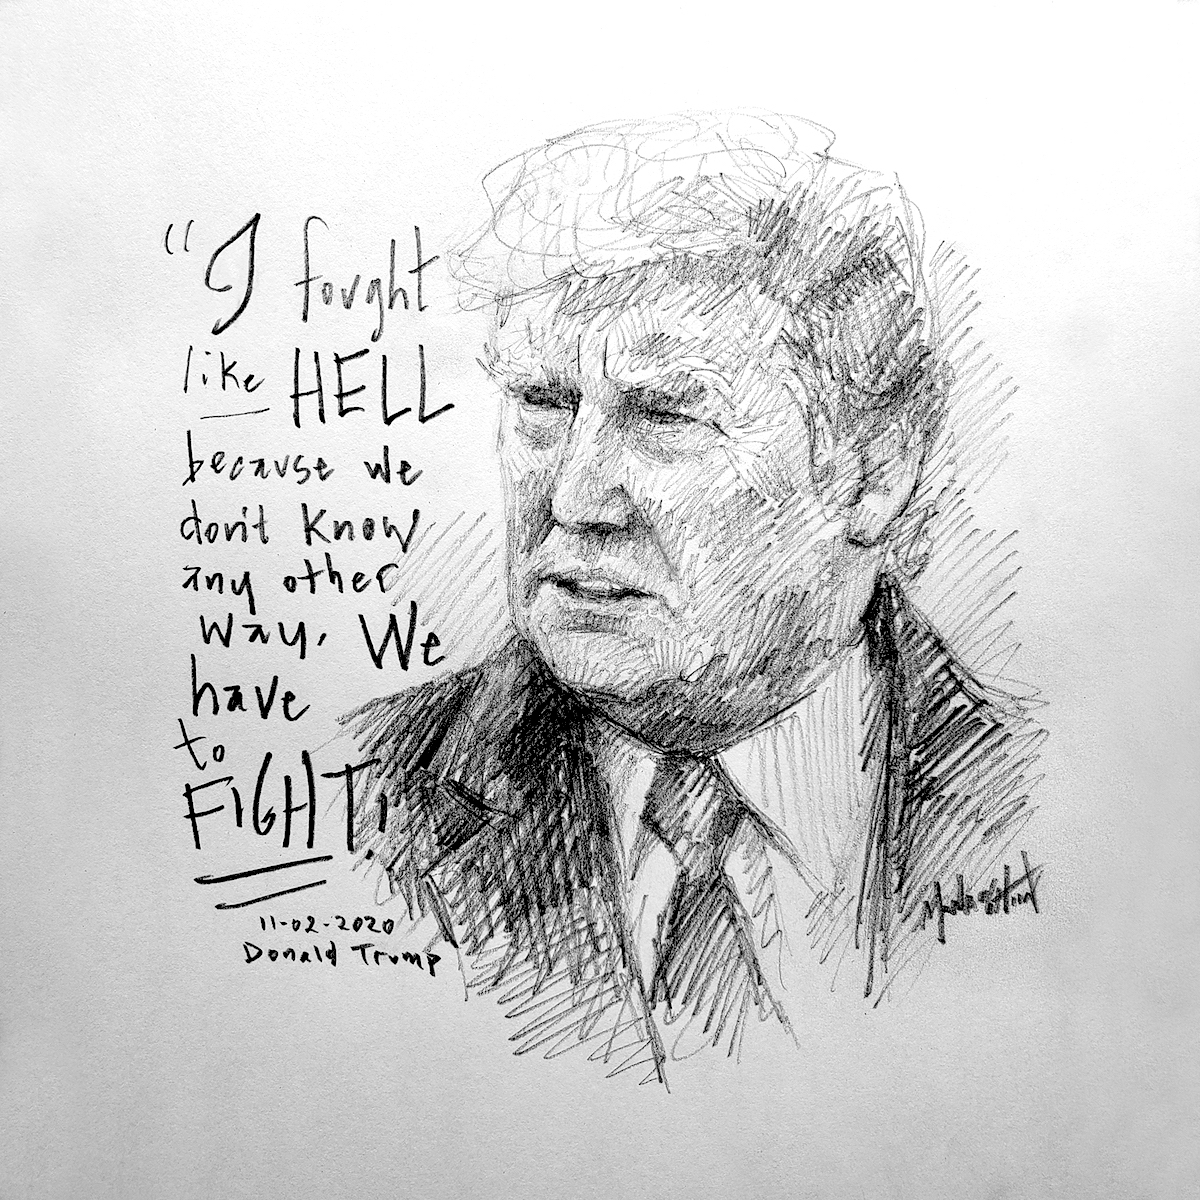 "I fought
like HELL
because we
don't know
any other
way, We
have
to
FIGHT!
11-02-2020
Donald Trump